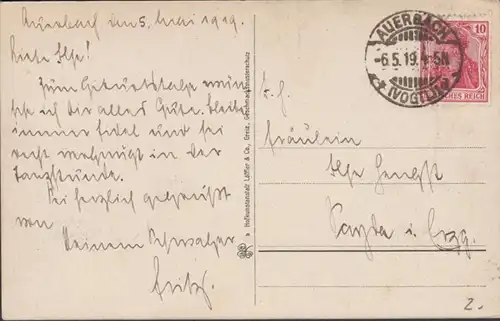 Auerbach den 5. Mai 1919.
Liebe Ilse!
Zum Geburtstage wün-
sche ich dir alles Gute. Bleibe
immer fidel und sei
recht vergnügt in der
Tanzstunde.
Sei herzlich gegrüßt
von
Deinem
Fritz.
Kunstanstalt Löffler & Co., Greiz,
AUERBACH
-6.5.19. 4-5N
(VOGTL)
10
DEUTSCHES REICH
Fräulein
Ilse
Sayda i. Erzg.
2.